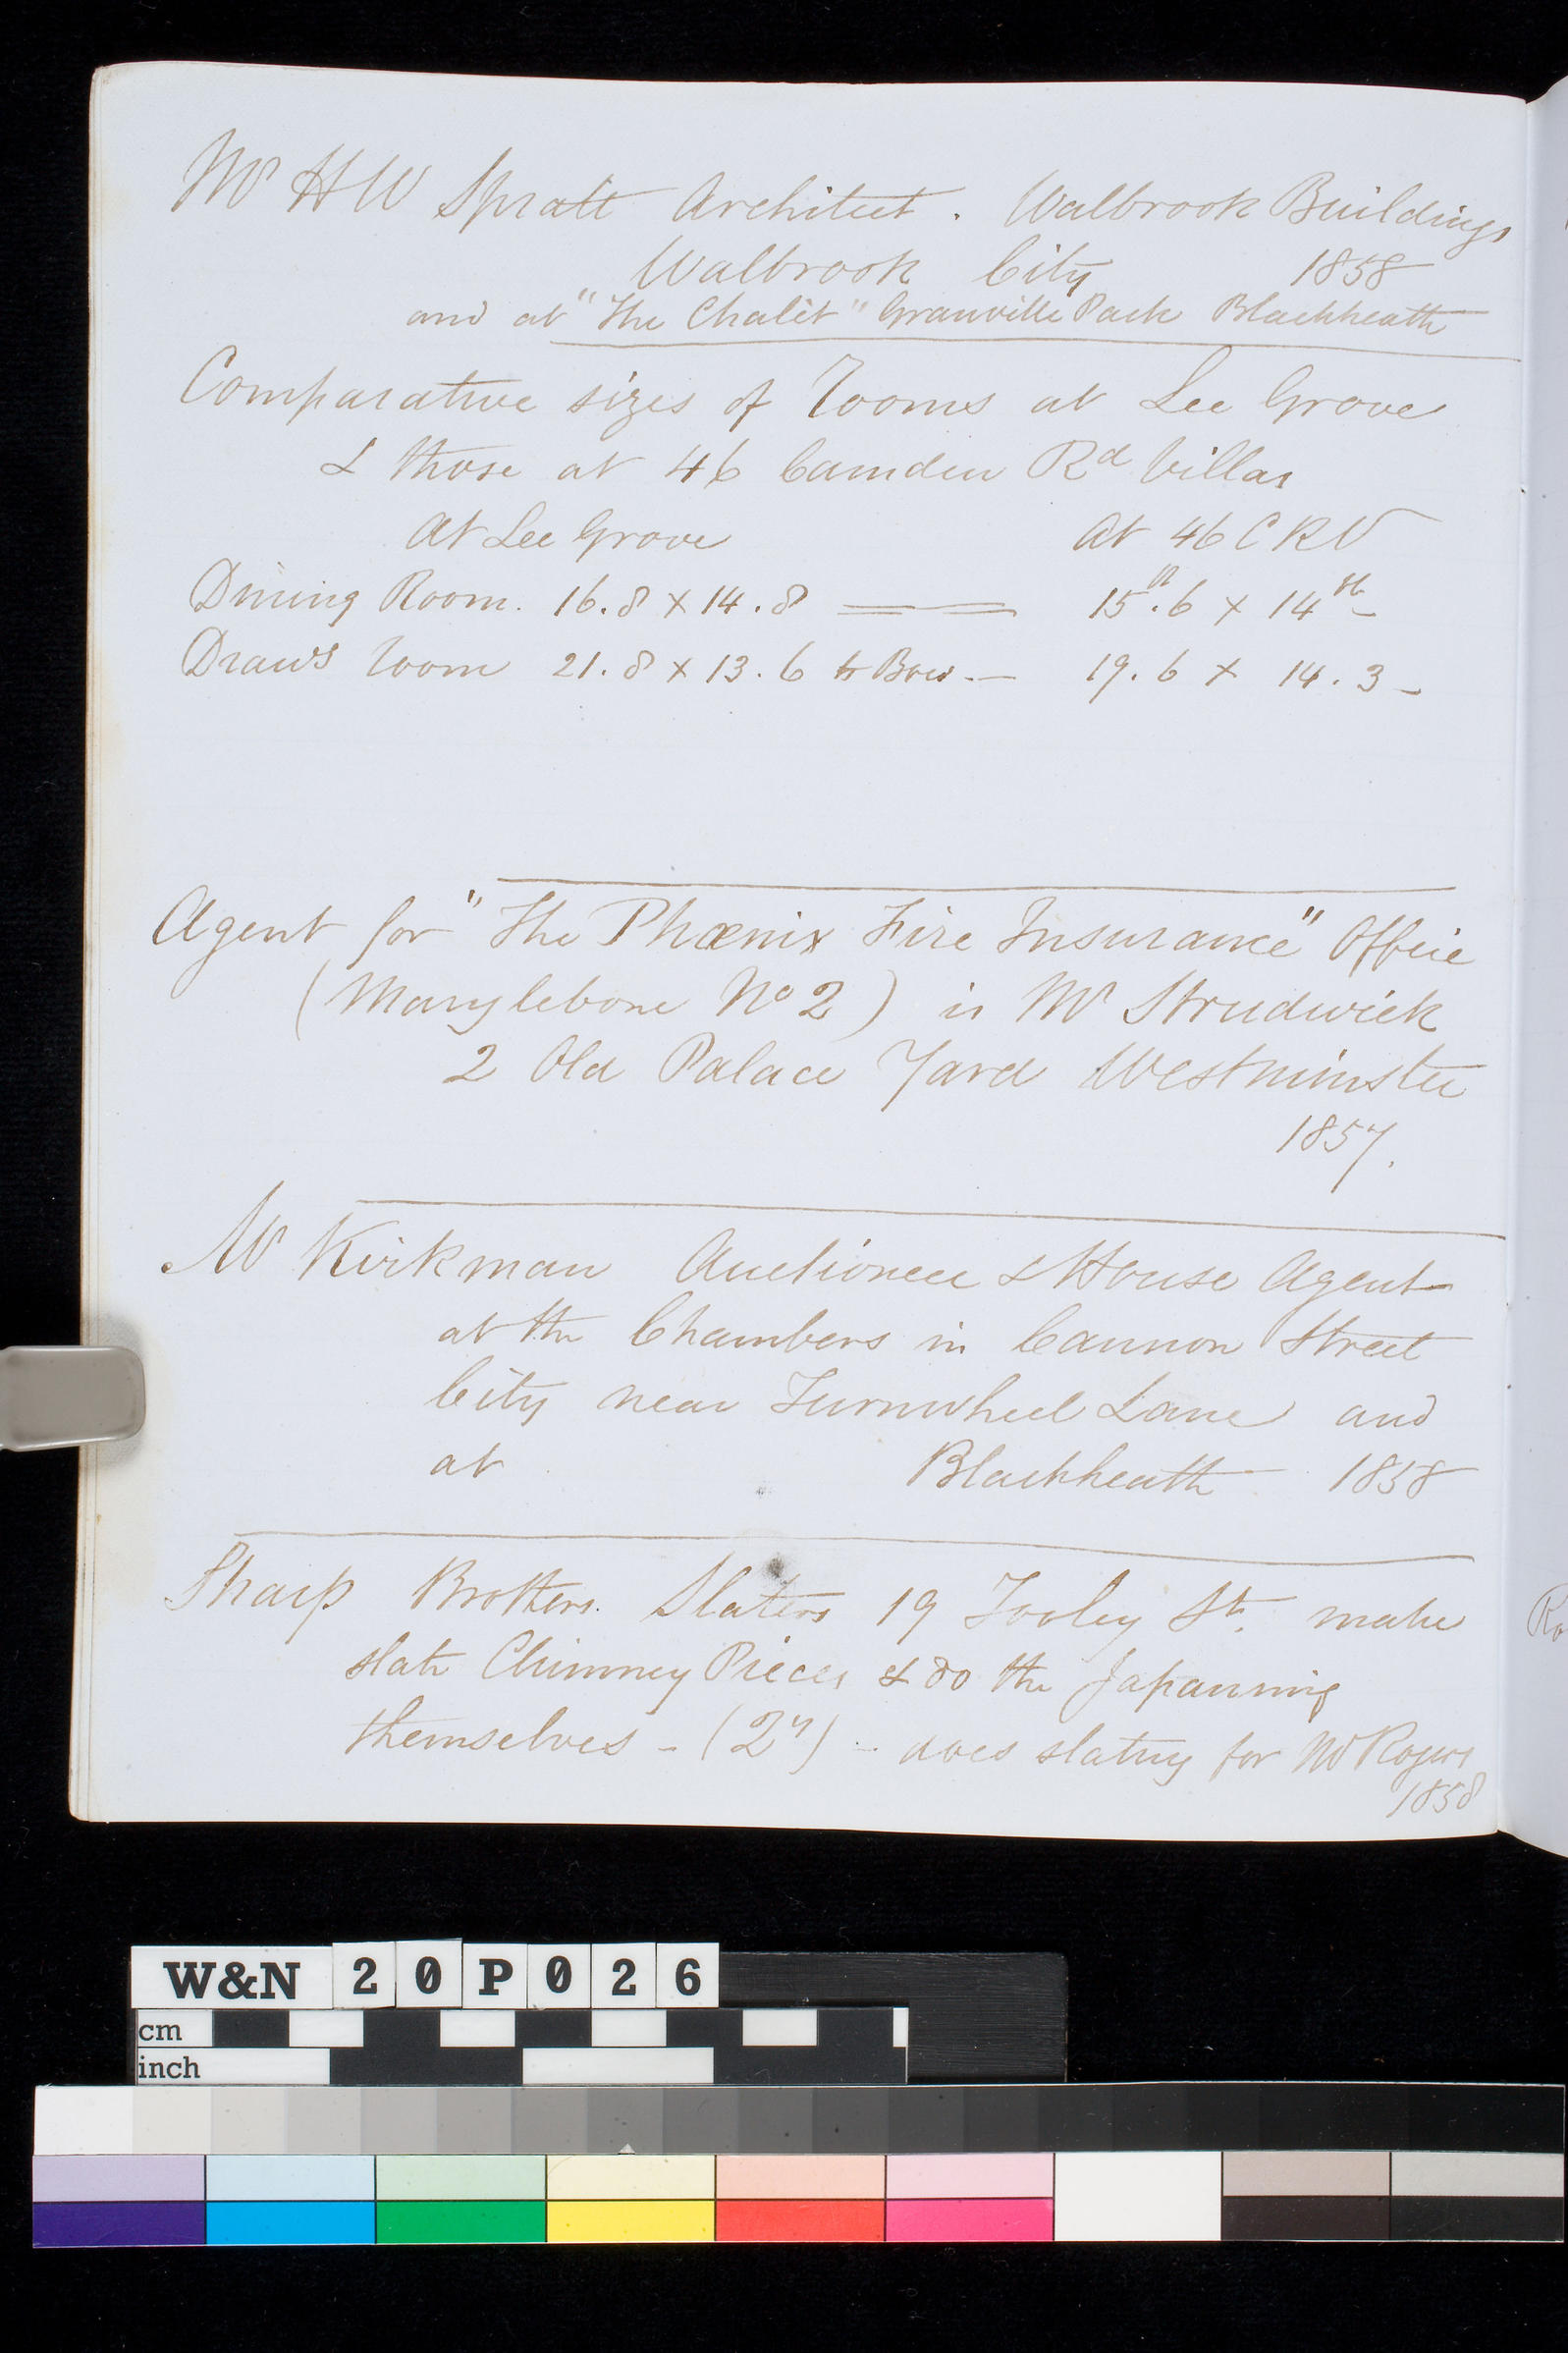 Mr H W Spratt Architect. Walbrook Buildings
Walbrook City 1858
and at "The Chalêt" Granville Park Blackheath
Comparative sizes of Rooms at Lee Grove
& those at 46 Camden Rd Villas
At Lee Grove At 46 C R V
Dining Room. 16.8 x 14.8 15ft.6 x 14ft
Drawg room 21.8 x 13.6 to Bow - 19.6 x 14.3 -
Agent for "The Phœnix Fire Insurance" Office
(Marylebone No 2) is Mr Strudwick
2 Old Palace Yard Westminster
1857.
Mr Kirkman Auctioneer & House Agent
at the Chambers in Cannon Street
City near Turnwheel Lane and
at Blackheath 1858
Sharp Brothers. Slaters 19 Tooley St. make
slate Chimney Pieces & do the Japanning
themselves - (2y) - does slating for Mr Rogers
1858
W&N 20P026
cm
inch